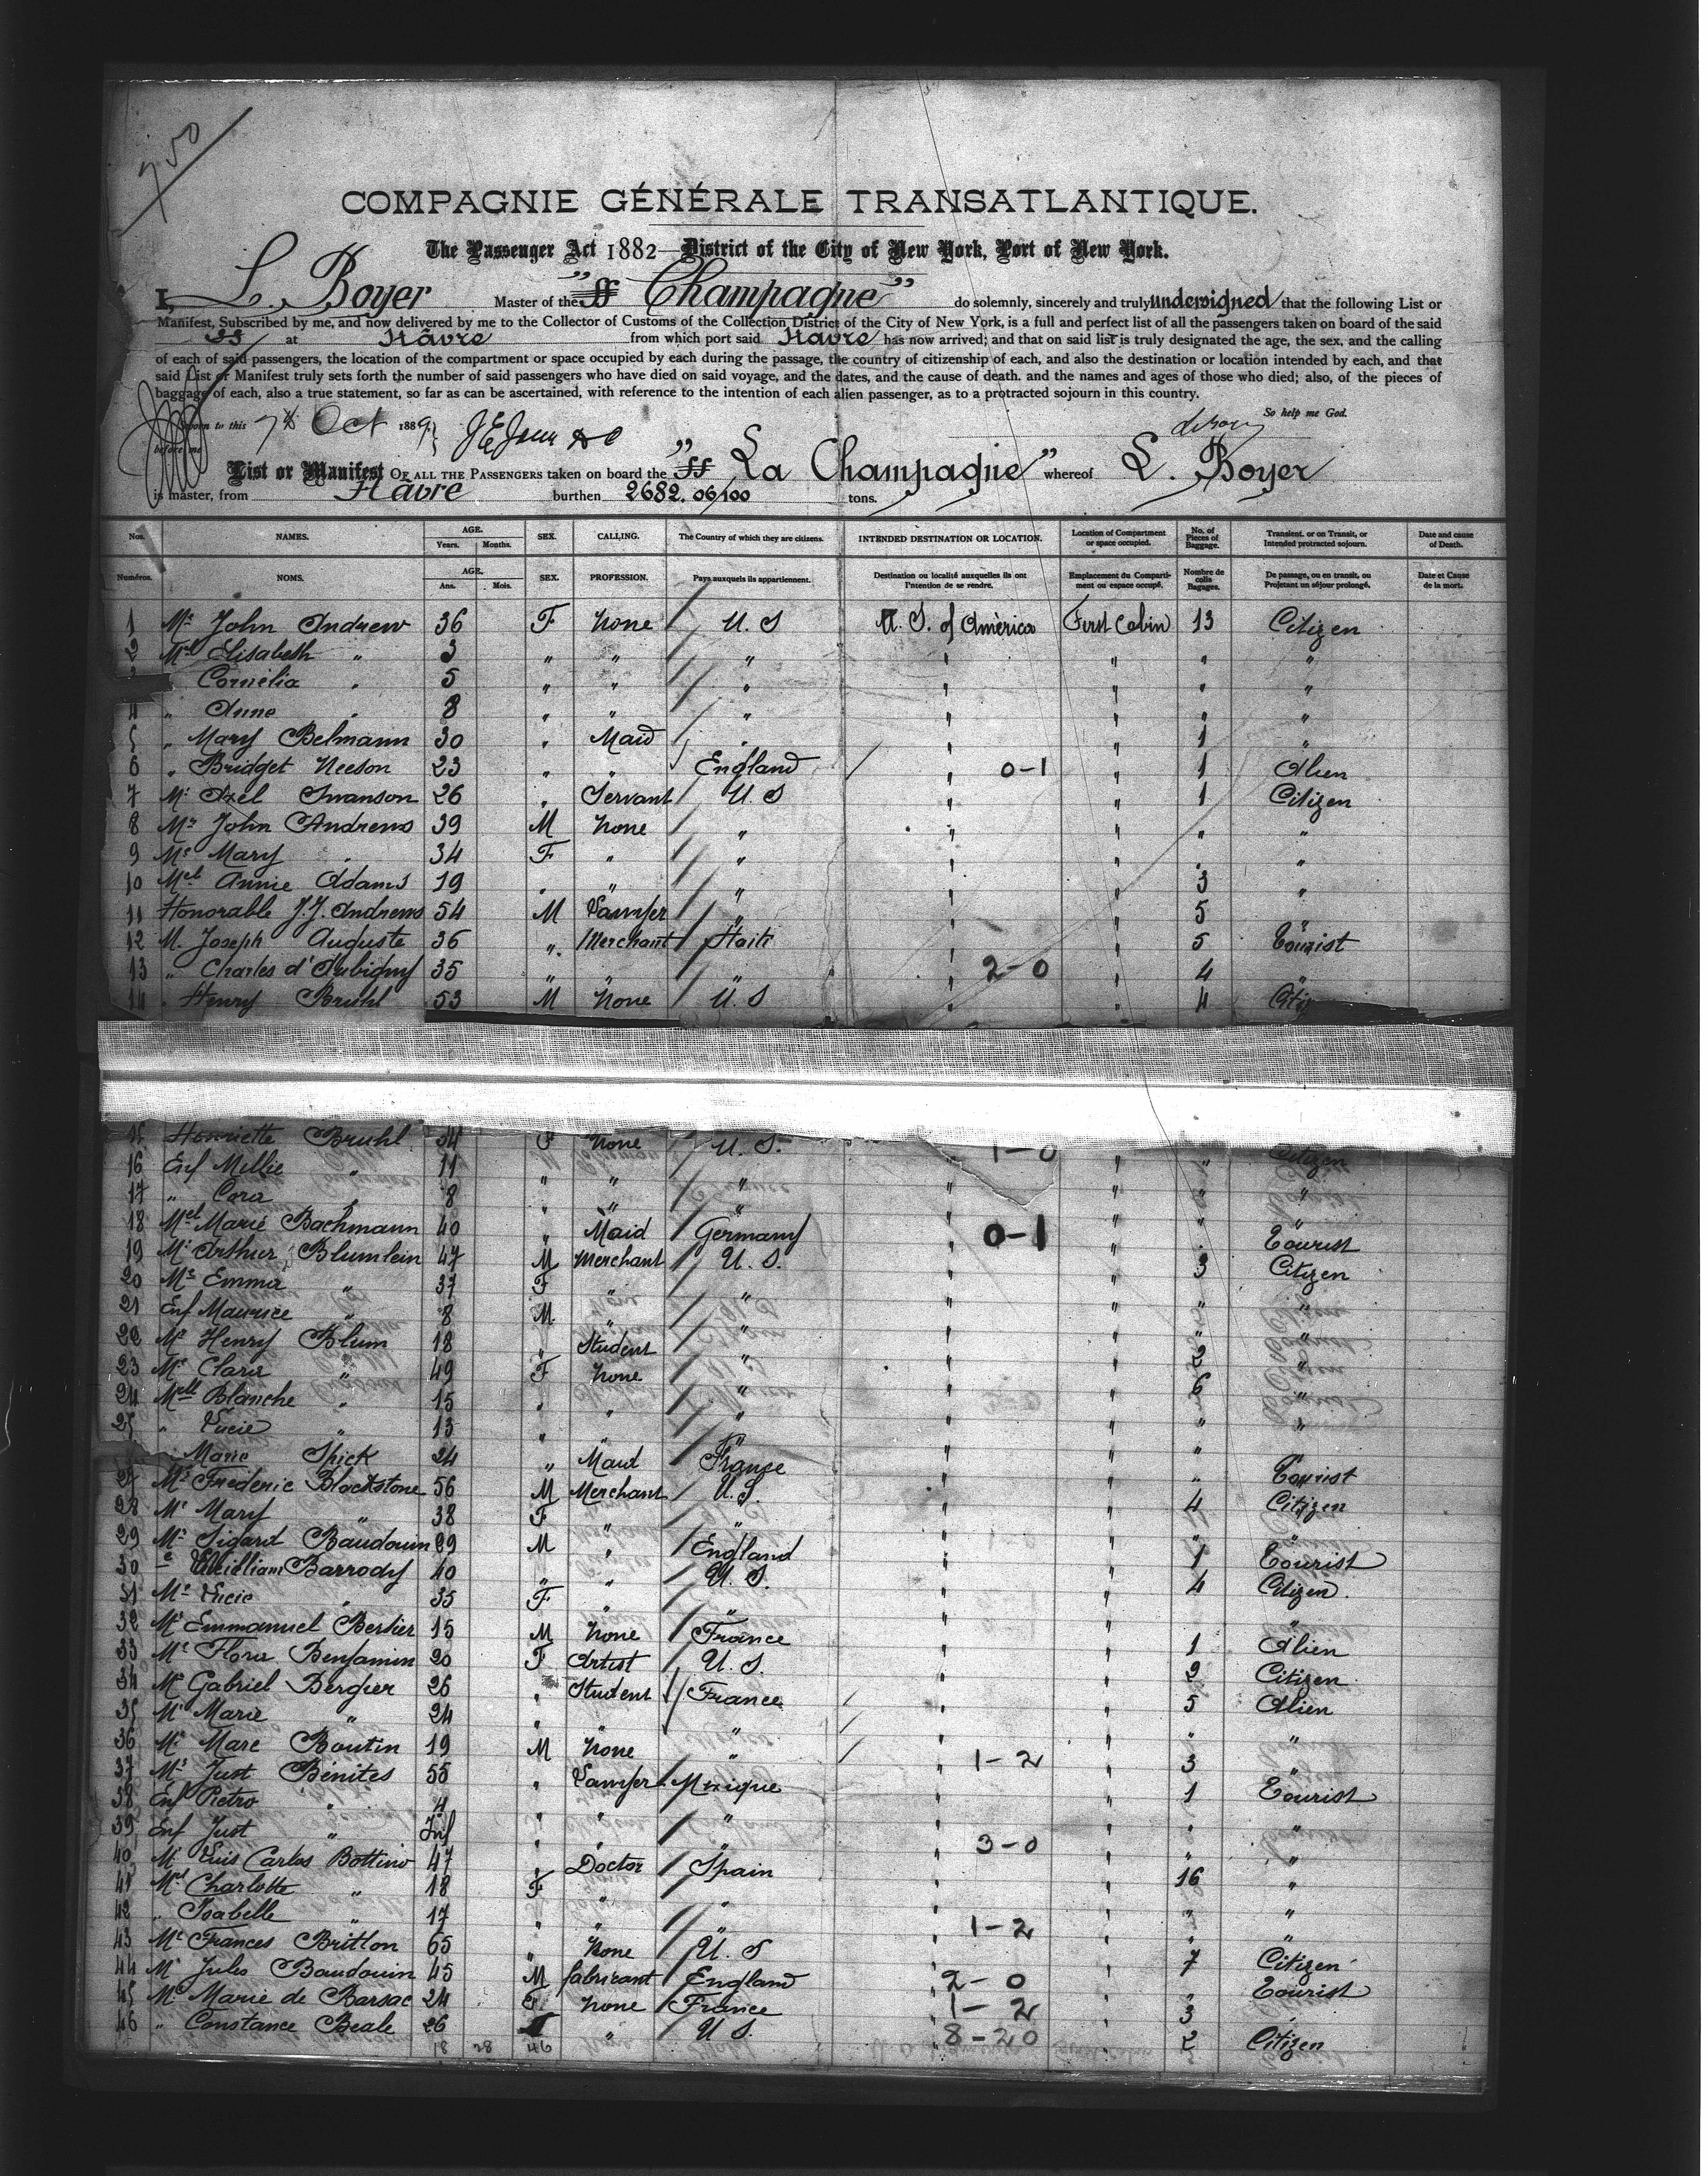 7 50
COMPAGNIE GÉNÉRALE TRANSATLANTIQUE.
The Passenger Act 1882—District of the City of New York, Port of New York.
I, L. Boyer Master of the SS "Champagne" do solemnly, sincerely and truly undersigned that the following List or
Manifest, Subscribed by me, and now delivered by me to the Collector of Customs of the Collection District of the City of New York, is a full and perfect list of all the passengers taken on board of the said
SS at Hâvre from which port said Hâvre has now arrived; and that on said list is truly designated the age, the sex, and the calling
of each of said passengers, the location of the compartment or space occupied by each during the passage, the country of citizenship of each, and also the destination or location intended by each, and that
said List or Manifest truly sets forth the number of said passengers who have died on said voyage, and the dates, and the cause of death. and the names and ages of those who died; also, of the pieces of
baggage of each, also a true statement, so far as can be ascertained, with reference to the intention of each alien passenger, as to a protracted sojourn in this country.
So help me God.
Sworn to this 7th Oct 1889
before me
List or Manifest OF ALL THE PASSENGERS taken on board the SS "La Champagne" whereof L. Boyer
is master, from Hâvre burthen 2682. 06/100 tons.
Nos. NAMES. AGE. Years. Months. SEX. CALLING. The Country of which they are citizens. INTENDED DESTINATION OR LOCATION. Location of Compartment or space occupied. No. of Pieces of Baggage. Transient. or on Transit, or Intended protracted sojourn. Date and cause of Death.
Numéros. NOMS. AGE. Ans. Mois. SEX. PROFESSION. Pays auxquels ils appartiennent. Destination ou localité auxquelles ils ont l'intention de se rendre. Emplacement du Compartiment ou espace occupé. Nombre de colis Bagages. De passage, ou en transit, ou Projetant un séjour prolongé. Date et Cause de la mort.
1 Me John Andrew 36 F None U.S U.S. of America First Cabin 13 Citizen
2 Mel Elisabeth " 3 " " " " " " "
Cornelia " 5 " " " " " " "
4 " Anne " 8 " " " " " " "
5 " Mary Belmann 30 " Maid " " " 1 "
6 " Bridget Neeson 23 " " England " 0-1 " 1 Alien
7 Mr Axel Swanson 26 " Servant U.S " " 1 Citizen
8 Mr John Andrews 39 M None " " " " "
9 Me Mary " 34 F " " " " " "
10 Mel Annie Adams 19 " " " " " 3 "
11 Honorable J.J. Andrews 54 M Lawyer " " " 5 "
12 M. Joseph Auguste 36 " Merchant Haiti " " 5 Tourist
13 " Charles d'Aubigny 35 " " " " 2-0 " 4 "
14 " Henry Bruhl 53 M None U.S " " 4
15 Henriette Bruhl 34 F None U.S. 1-0 " Citizen
16 Enf Mellie " 11 " " " " " " "
17 " Cora " 8 " " " " " " "
18 Mel Marie Bachmann 40 " Maid Germany " 0-1 " " Tourist
19 Mr Arthur Blumlein 47 M Merchant U.S. " " 3 Citizen
20 Me Emma " 37 F " " " " " "
21 Enf Maurice " 8 M " " " " " "
22 Mr Henry Blum 18 " Student " " " 2 "
23 Me Clara " 49 F None " " " 6 "
24 Melle Blanche " 15 " " " " " " "
25 " Lucie 13 " " " " " "
" Marie Spick 24 " Maid France " " " Tourist
27 Mr Frederic Blackstone 56 M Merchant U.S. " " 4 Citizen
28 Me Mary " 38 F " " " " " "
29 Mr Sigard Baudouin 29 M " England " " 1 Tourist
30 William Barrody 40 " " U.S. " " 4 Citizen.
31 Me Lucie " 35 F " " " " " "
32 Mr Emmanuel Bertier 15 M None France " " 1 Alien
33 Me Flora Benjamin 20 F Artist U.S. " " 2 Citizen
34 Mr Gabriel Bergier 26 " Student France " " 5 Alien
35 Me Marie " 24 " " " " " " "
36 Mr Marc Boutin 19 M None " " 1-2 " 3 "
37 Mr Just Benites 55 " Lawyer Mexique " " 1 Tourist
38 Enf Pietro " 4 " " " " " " "
39 Enf Just " Inf " " " " 3-0 " " "
40 Mr Luis Carlos Bottino 47 " Doctor Spain " " 16 "
41 Mel Charlotte " 18 F " " " " " "
42 " Isabelle " 17 " " " " 1-2 " " "
43 Me Frances Britton 65 " None U.S " " 7 Citizen
44 Mr Jules Baudouin 45 M fabricant England " 2-0 " " Tourist
45 Me Marie de Barsac 24 F None France " 1-2 " 3 "
46 " Constance Beale 26 " U S. " 8-20 " 2 Citizen
18 28 46